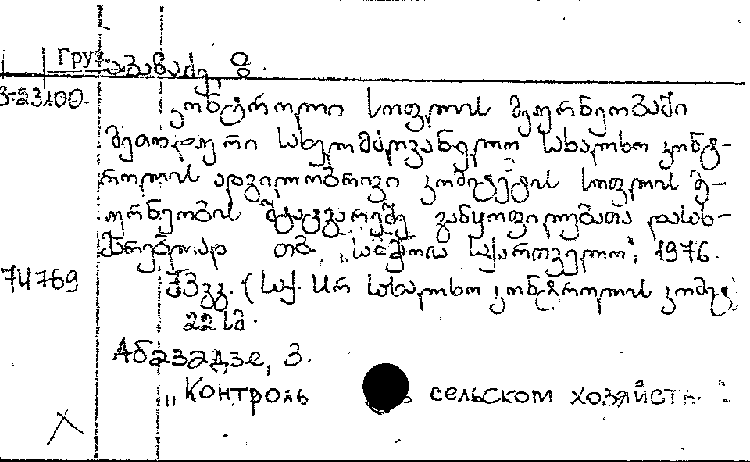 Груз
აბაზაძე, ზ.
კონტროლი სოფლის მეურნეობაში
მეთოდური სახელმძღვანელო სახალხო კონტ-
როლის ადგილობრივი კომიტეტის სოფლის მე-
ურნეობის შტატგარეშე განყოფილებათა დასახ-
მარებლად თბ. „საბჭოთა საქართველო", 1976.
74769 73 გვ. (საქ. სსრ სახალხო კონტროლის კომიტ
22 სმ.
Абазадзе, З.
„Контроль сельском хозяйств